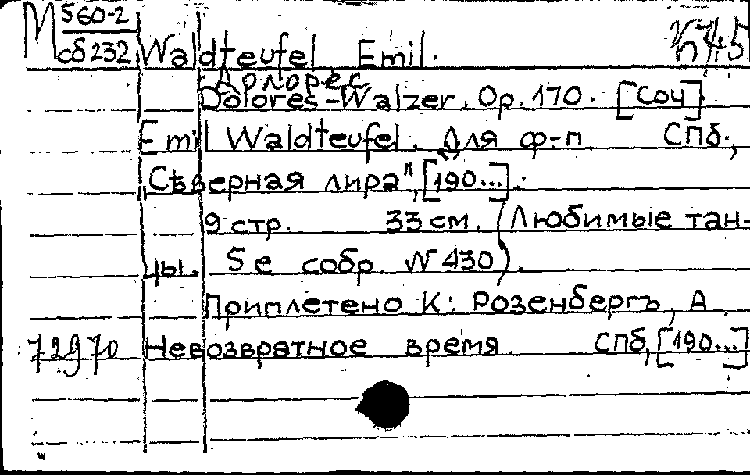 М 560-2
сб 232 Waldteufel Emil.
Долорес
Dolores-Walzer. Op. 170. [Соч]
Emil Waldteufel. Для ф-п. СПб.,
„Сѣверная лира", [190...].
9 стр. 33 см. (Любимые тан-
цы. 5е собр. N 430).
Приплетено к: Розенбергъ, А
72970 Невозвратное время. СПб, [190...]